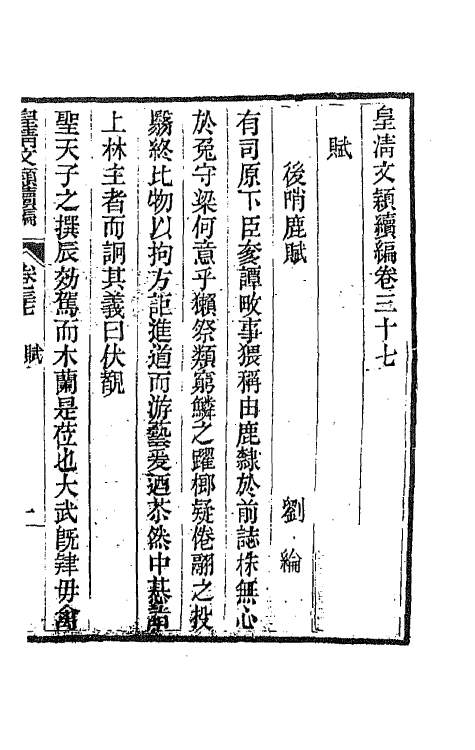 皇清文穎續編卷三十七
賦
後哨鹿賦 劉綸
有司原下臣奓譚畋事猥稱由鹿隸於前誌株無心
於兔守梁何意乎獺祭類窮鱗之躍櫛疑倦翮之投
翳終比物以拘方詎進道而游藝爰迺苶然中惎
上林主者而詗其義曰伏覩
聖天子之撰辰効駕而木蘭是莅也大武旣肄毋
皇清文穎續編 卷三十七 賦 一